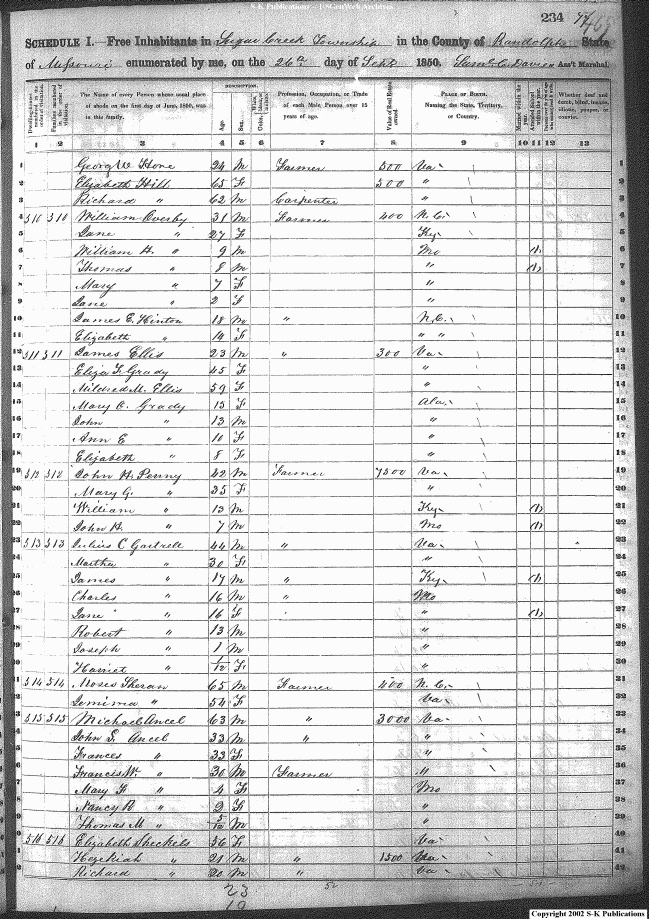 S-K Publications / USGenWeb Archives
234
SCHEDULE I.—Free Inhabitants in Sugar Creek Township in the County of Randolph State
of Missouri enumerated by me, on the 26th day of Sept 1850. Ass't Marshal.
DESCRIPTION.
Dwelling-houses numbered in the order of visitation.
Families numbered in the order of visitation.
The Name of every Person whose usual place of abode on the first day of June, 1850, was in this family.
Age.
Sex.
White, black, or mulatto.
Profession, Occupation, or Trade of each Male Person over 15 years of age.
Value of Real Estate owned.
PLACE OF BIRTH. Naming the State, Territory, or Country.
Married within the year.
Whether deaf and dumb, blind, insane, idiotic, pauper, or convict.
1 2 3 4 5 6 7 8 9 10 11 12 13
1 Georg W Hore 24 M Farmer 500 Va 1
2 Elizabeth Hill 65 F 500 " 2
3 Richard " 62 M Carpenter " 3
4 310 310 William Oversby 31 M Farmer 400 N.C. 4
5 Jane " 27 F Ky 5
6 William H. " 9 M Mo 1 6
7 Thomas " 8 M " 1 7
8 Mary " 7 F " 8
9 Jane " 2 F " 9
10 James E. Hinton 18 M " N.C. 10
11 Elizabeth " 14 F " " 11
12 311 311 James Ellis 23 M " 300 Va 12
13 Eliza F Grady 45 F " 13
14 Mildred M. Ellis 59 F " 14
15 Mary C. Grady 15 F Ala 15
16 John " 13 M " 16
17 Ann E " 10 F " 17
18 Elizabeth " 8 F " 18
19 312 312 John H. Penny 42 M Farmer 7500 Va 19
20 Mary G. " 35 F " 20
21 William " 13 M Ky 1 21
22 John H. " 7 M Mo 1 22
23 313 313 Julius C Gartrell 44 M " Va 23
24 Martha " 30 F " 24
25 James " 17 M " Ky 1 25
26 Charles " 16 M " Mo 26
27 Jane " 16 F " 1 27
28 Robert " 13 M " 28
29 Joseph " 1 M " 29
30 Harriet " 1/12 F " 30
31 314 314 Moses Sheran 65 M Farmer 400 N.C. 31
32 Jemima " 54 F Va 32
33 315 315 Michael Ancel 63 M " 3000 Va 33
34 John S. Ancel 33 M " " 34
35 Frances " 33 F " 35
36 Francis W. " 30 M Farmer " 36
37 Mary F " 4 F Mo 37
38 Nancy R " 2 F " 38
39 Thomas M " 5/12 M " 39
40 316 316 Elizabeth Sheckels 56 F Va 40
41 Hezekiah " 21 M " 1500 Va 41
42 Richard " 20 M " Va 42
23
19
Copyright 2002 S-K Publications